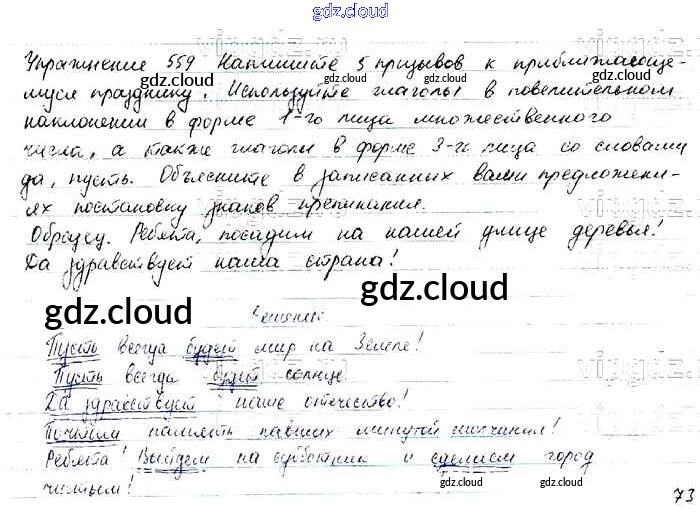 gdz.cloud
Упражнение 559 Напишите 5 призывов к приближающе-
gdz.cloud gdz.cloud
муся празднику. Используйте глаголы в повелительном
наклонении в форме 1-го лица множественного
числа, а также глаголы в форме 3-го лица со словами
да, пусть. Объясните в записанных вами предложени-
ях постановку знаков препинания.
Образец. Ребята, посадим на нашей улице деревья!
Да здравствует наша страна!
gdz.cloud gdz.cloud
Решение.
Пусть всегда будет мир на Земле!
gdz.cloud gdz.cloud
Пусть всегда будет солнце.
Да здравствует наше отечество!
Почтим память павших минутой молчания!
Ребята! Выйдем на субботник и сделаем город
gdz.cloud gdz.cloud
чистым!
73